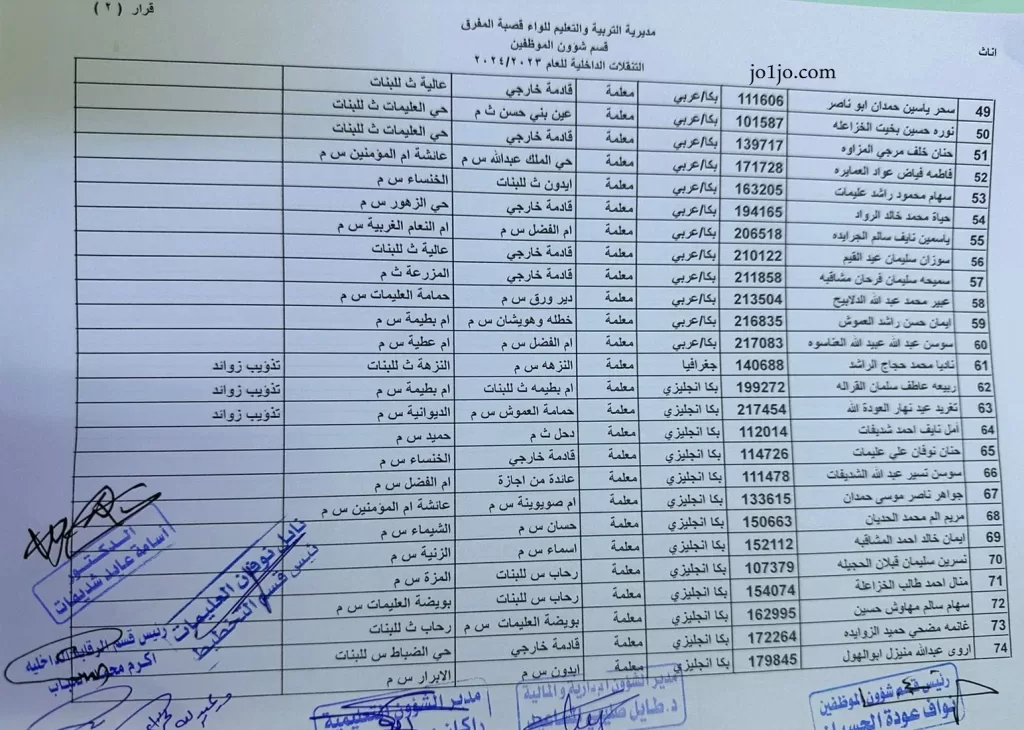 قرار ( ٢ )
مديرية التربية والتعليم للواء قصبة المفرق
قسم شؤون الموظفين
اناث
التنقلات الداخلية للعام ٢٠٢٤/٢٠٢٣
jo1jo.com
49 سحر ياسين حمدان ابو ناصر 111606 بكا/عربي معلمة قادمة خارجي عالية ث للبنات
50 نوره حسين بخيت الخزاعله 101587 بكا/عربي معلمة عين بني حسن ث م حي العليمات ث للبنات
51 حنان خلف مرجي المزاوه 139717 بكا/عربي معلمة قادمة خارجي حي العليمات ث للبنات
52 فاطمه فياض عواد العمايره 171728 بكا/عربي معلمة حي الملك عبدالله س م عائشة ام المؤمنين س م
53 سهام محمود راشد عليمات 163205 بكا/عربي معلمة ايدون ث للبنات الخنساء س م
54 حياة محمد خالد الرواد 194165 بكا/عربي معلمة قادمة خارجي حي الزهور س م
55 ياسمين نايف سالم الجرايده 206518 بكا/عربي معلمة ام الفضل س م ام النعام الغربية س م
56 سوزان سليمان عبد القيم 210122 بكا/عربي معلمة قادمة خارجي عالية ث للبنات
57 سميحه سليمان فرحان مشاقبه 211858 بكا/عربي معلمة قادمة خارجي المزرعة ث م
58 عبير محمد عبد الله الدلابيح 213504 بكا/عربي معلمة دير ورق س م حمامة العليمات س م
59 ايمان حسن راشد العموش 216835 بكا/عربي معلمة خطله وهويشان س م ام بطيمة س م
60 سوسن عبد الله عبيد الله العناسوه 217083 بكا/عربي معلمة ام الفضل س م ام عطية س م
61 ناديا محمد حجاج الراشد 140688 جغرافيا معلمة النزهه س م النزهة ث للبنات تذويب زوائد
62 ربيعه عاطف سلمان القراله 199272 بكا انجليزي معلمة ام بطيمه ث للبنات ام بطيمة س م تذويب زوائد
63 تغريد عيد نهار العودة الله 217454 بكا انجليزي معلمة حمامة العموش س م الديوانية س م تذويب زوائد
64 أمل نايف احمد شديفات 112014 بكا انجليزي معلمة دحل ث م حميد س م
65 حنان نوفان علي عليمات 114726 بكا انجليزي معلمة قادمة خارجي الخنساء س م
66 سوسن تسير عبد الله الشديفات 111478 بكا انجليزي معلمة عائدة من اجازة ام الفضل س م
67 جواهر ناصر موسى حمدان 133615 بكا انجليزي معلمة ام صويوينة س م عائشة ام المؤمنين س م
68 مريم الم محمد الحديان 150663 بكا انجليزي معلمة حسان س م الشيماء س م
69 ايمان خالد احمد المشاقبه 152112 بكا انجليزي معلمة اسماء س م الزنية س م
70 نسرين سليمان قبلان الحجيله 107379 بكا انجليزي معلمة رحاب س للبنات المزة س م
71 منال احمد طالب الخزاعلة 154074 بكا انجليزي معلمة رحاب س للبنات بويضة العليمات س م
72 سهام سالم مهاوش حسين 162995 بكا انجليزي معلمة بويضة العليمات س م رحاب ث للبنات
73 غانمه مضحي حميد الزوايده 172264 بكا انجليزي معلمة قادمة خارجي حي الضباط س للبنات
74 اروى عبدالله منيزل ابوالهول 179845 بكا انجليزي معلمة ايدون س م الابرار س م
الدكتور
اسامة عايد شديفات
نايل نوفان العليمات
رئيس قسم التخطيط
رئيس قسم الرقابة الداخلية
اكرم
مدير الشؤون التعليمية
مدير الشؤون الادارية والمالية
رئيس قسم شؤون الموظفين
نواف عودة